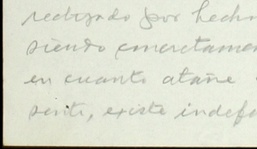 realizado por hechos
siendo concretamen
en cuanto atañe
senti, existe indefe